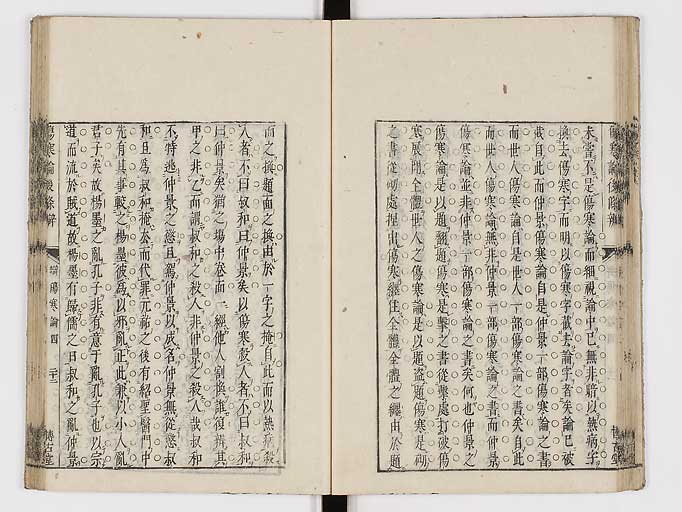 未嘗不是傷寒論而細視論中已無非暗以熱病字
換去傷寒字而明以傷寒字截去論字者矣論已被
截自此而仲景傷寒論自是仲景一部傷寒論之書
而世人傷寒論自是世人一部傷寒論之書矣自此
而世人傷寒論無非仲景一部傷寒論之書而仲景
傷寒論並非仲景一部傷寒論之書矣何也仲景之
傷寒論是以題翻題傷寒是擊之書從擊處打破傷
寒展門全體世人之傷寒論是以題盗題傷寒是砌
之書從砌處捏出傷寒軀住全體全體之軀由於題
而之換題面之換由於一字之掩自此而以熱病殺
人者不曰叔和曰仲景矣以傷寒殺人者不曰叔和
曰仲景矣猶之場中卷面一經他人割換誰復辨其
甲之非乙而謂叔和之殺人非仲景之殺人哉叔和
不特逃仲景之愆且竊仲景以成名仲景無從愆叔
和且爲叔和掩卷而代罪元祐之後有紹聖醫門中
先有其事較之楊墨彼爲以邪亂正此兼以小人亂
君子矣故楊墨之亂孔子非有意于亂孔子也以宗
道而流於賊道故楊墨有歸儒之日叔和之亂仲景
傷寒論後條辨
傷寒論四
二十三
博古堂